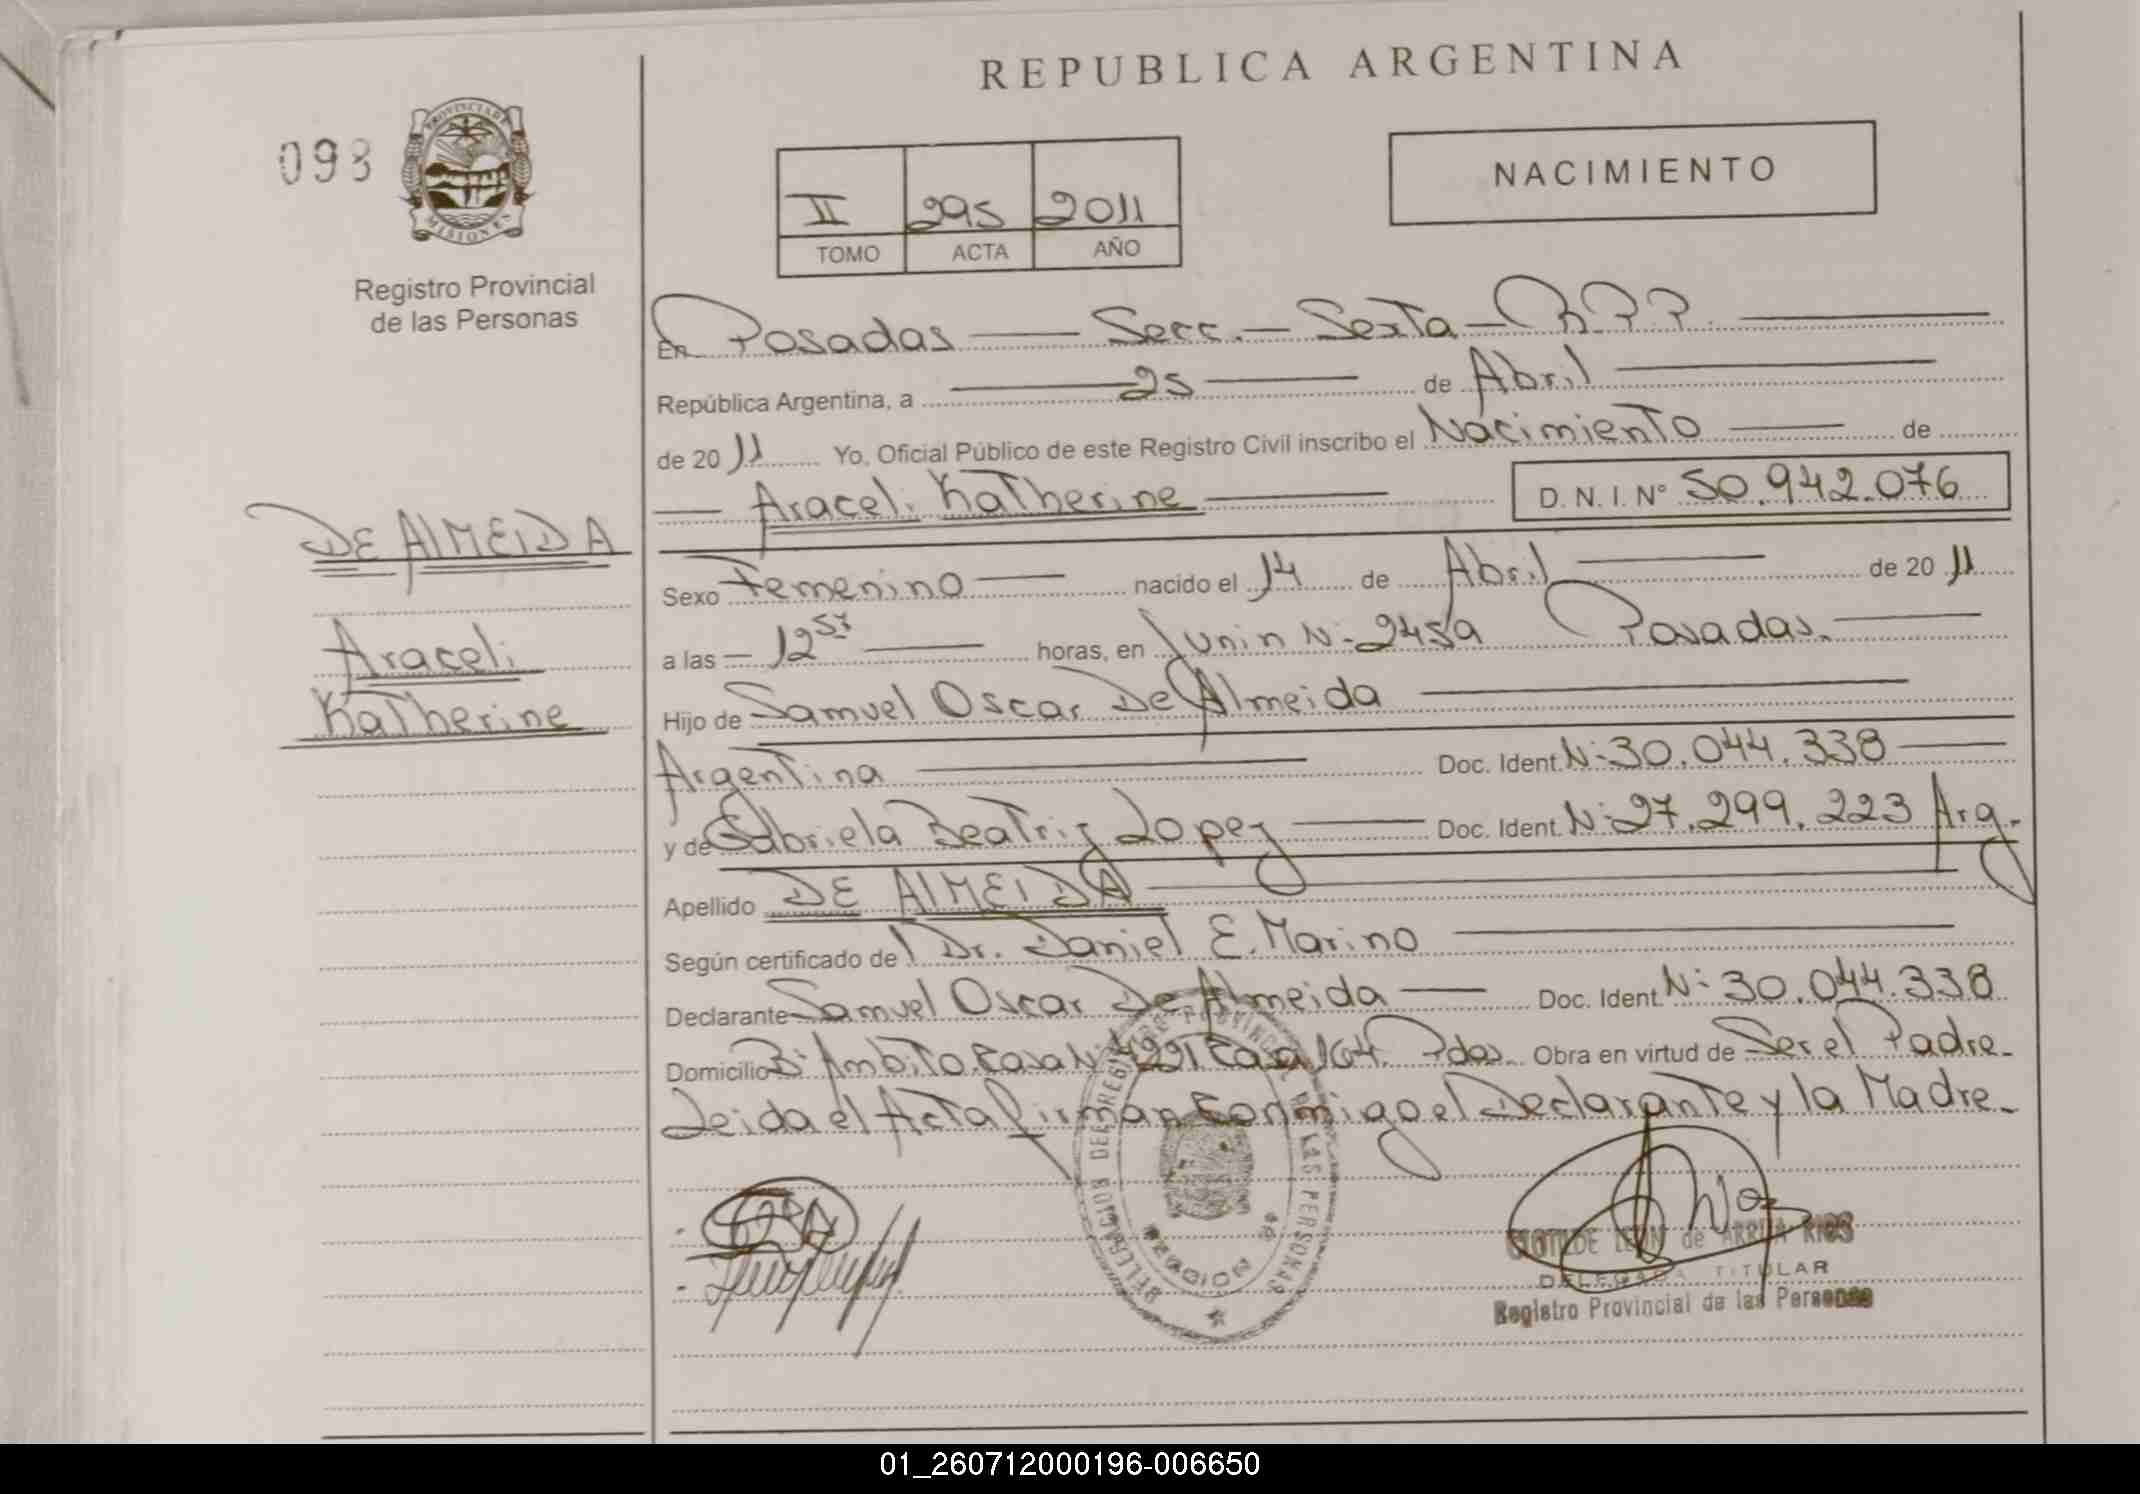 REPUBLICA ARGENTINA
093
PROVINCIA DE MISIONES
Registro Provincial
de las Personas
II 295 2011
TOMO ACTA AÑO
NACIMIENTO
En Posadas — Secc. — Sexta — R.P.P.
República Argentina, a 25 de Abril
de 2011 Yo, Oficial Público de este Registro Civil inscribo el Nacimiento de
Araceli Katherine D. N. I. N° 50.942.076
DE ALMEIDA
Araceli
Katherine
Sexo Femenino nacido el 14 de Abril de 2011
a las 12 57 horas, en Junin N: 2459 Posadas.
Hijo de Samuel Oscar De Almeida
Argentina Doc. Ident. N: 30.044.338
y de Gabriela Beatriz Lopez Doc. Ident. N: 27.299.223 Arg.
Apellido DE ALMEIDA
Según certificado del Dr. Daniel E. Marino
Declarante Samuel Oscar De Almeida Doc. Ident. N: 30.044.338
Domicilio B: Ambito. Casa N: 4221 Casa 164. Pdas. Obra en virtud de Ser el Padre.
Leida el Acta firman conmigo el Declarante y la Madre.
DELEGACION DEL REGISTRO PROVINCIAL DE LAS PERSONAS
CLOTILDE LEON de ARRUA RIOS
DELEGADA TITULAR
Registro Provincial de las Personas
01_260712000196-006650